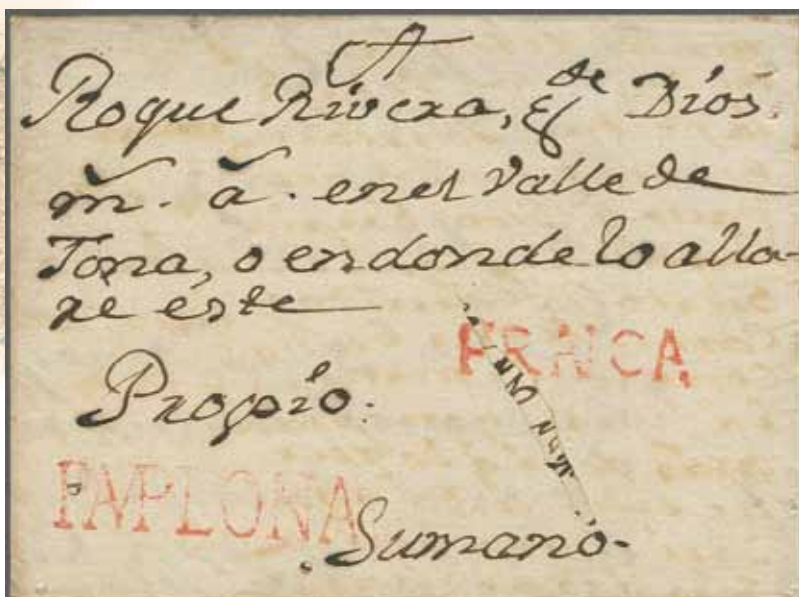 A
Roque Rivera, q de Dios
m. a. en el Valle de
Tona, o en donde lo alla-
re éste
FRNCA
Propio.
PAPLONA
Su mano.